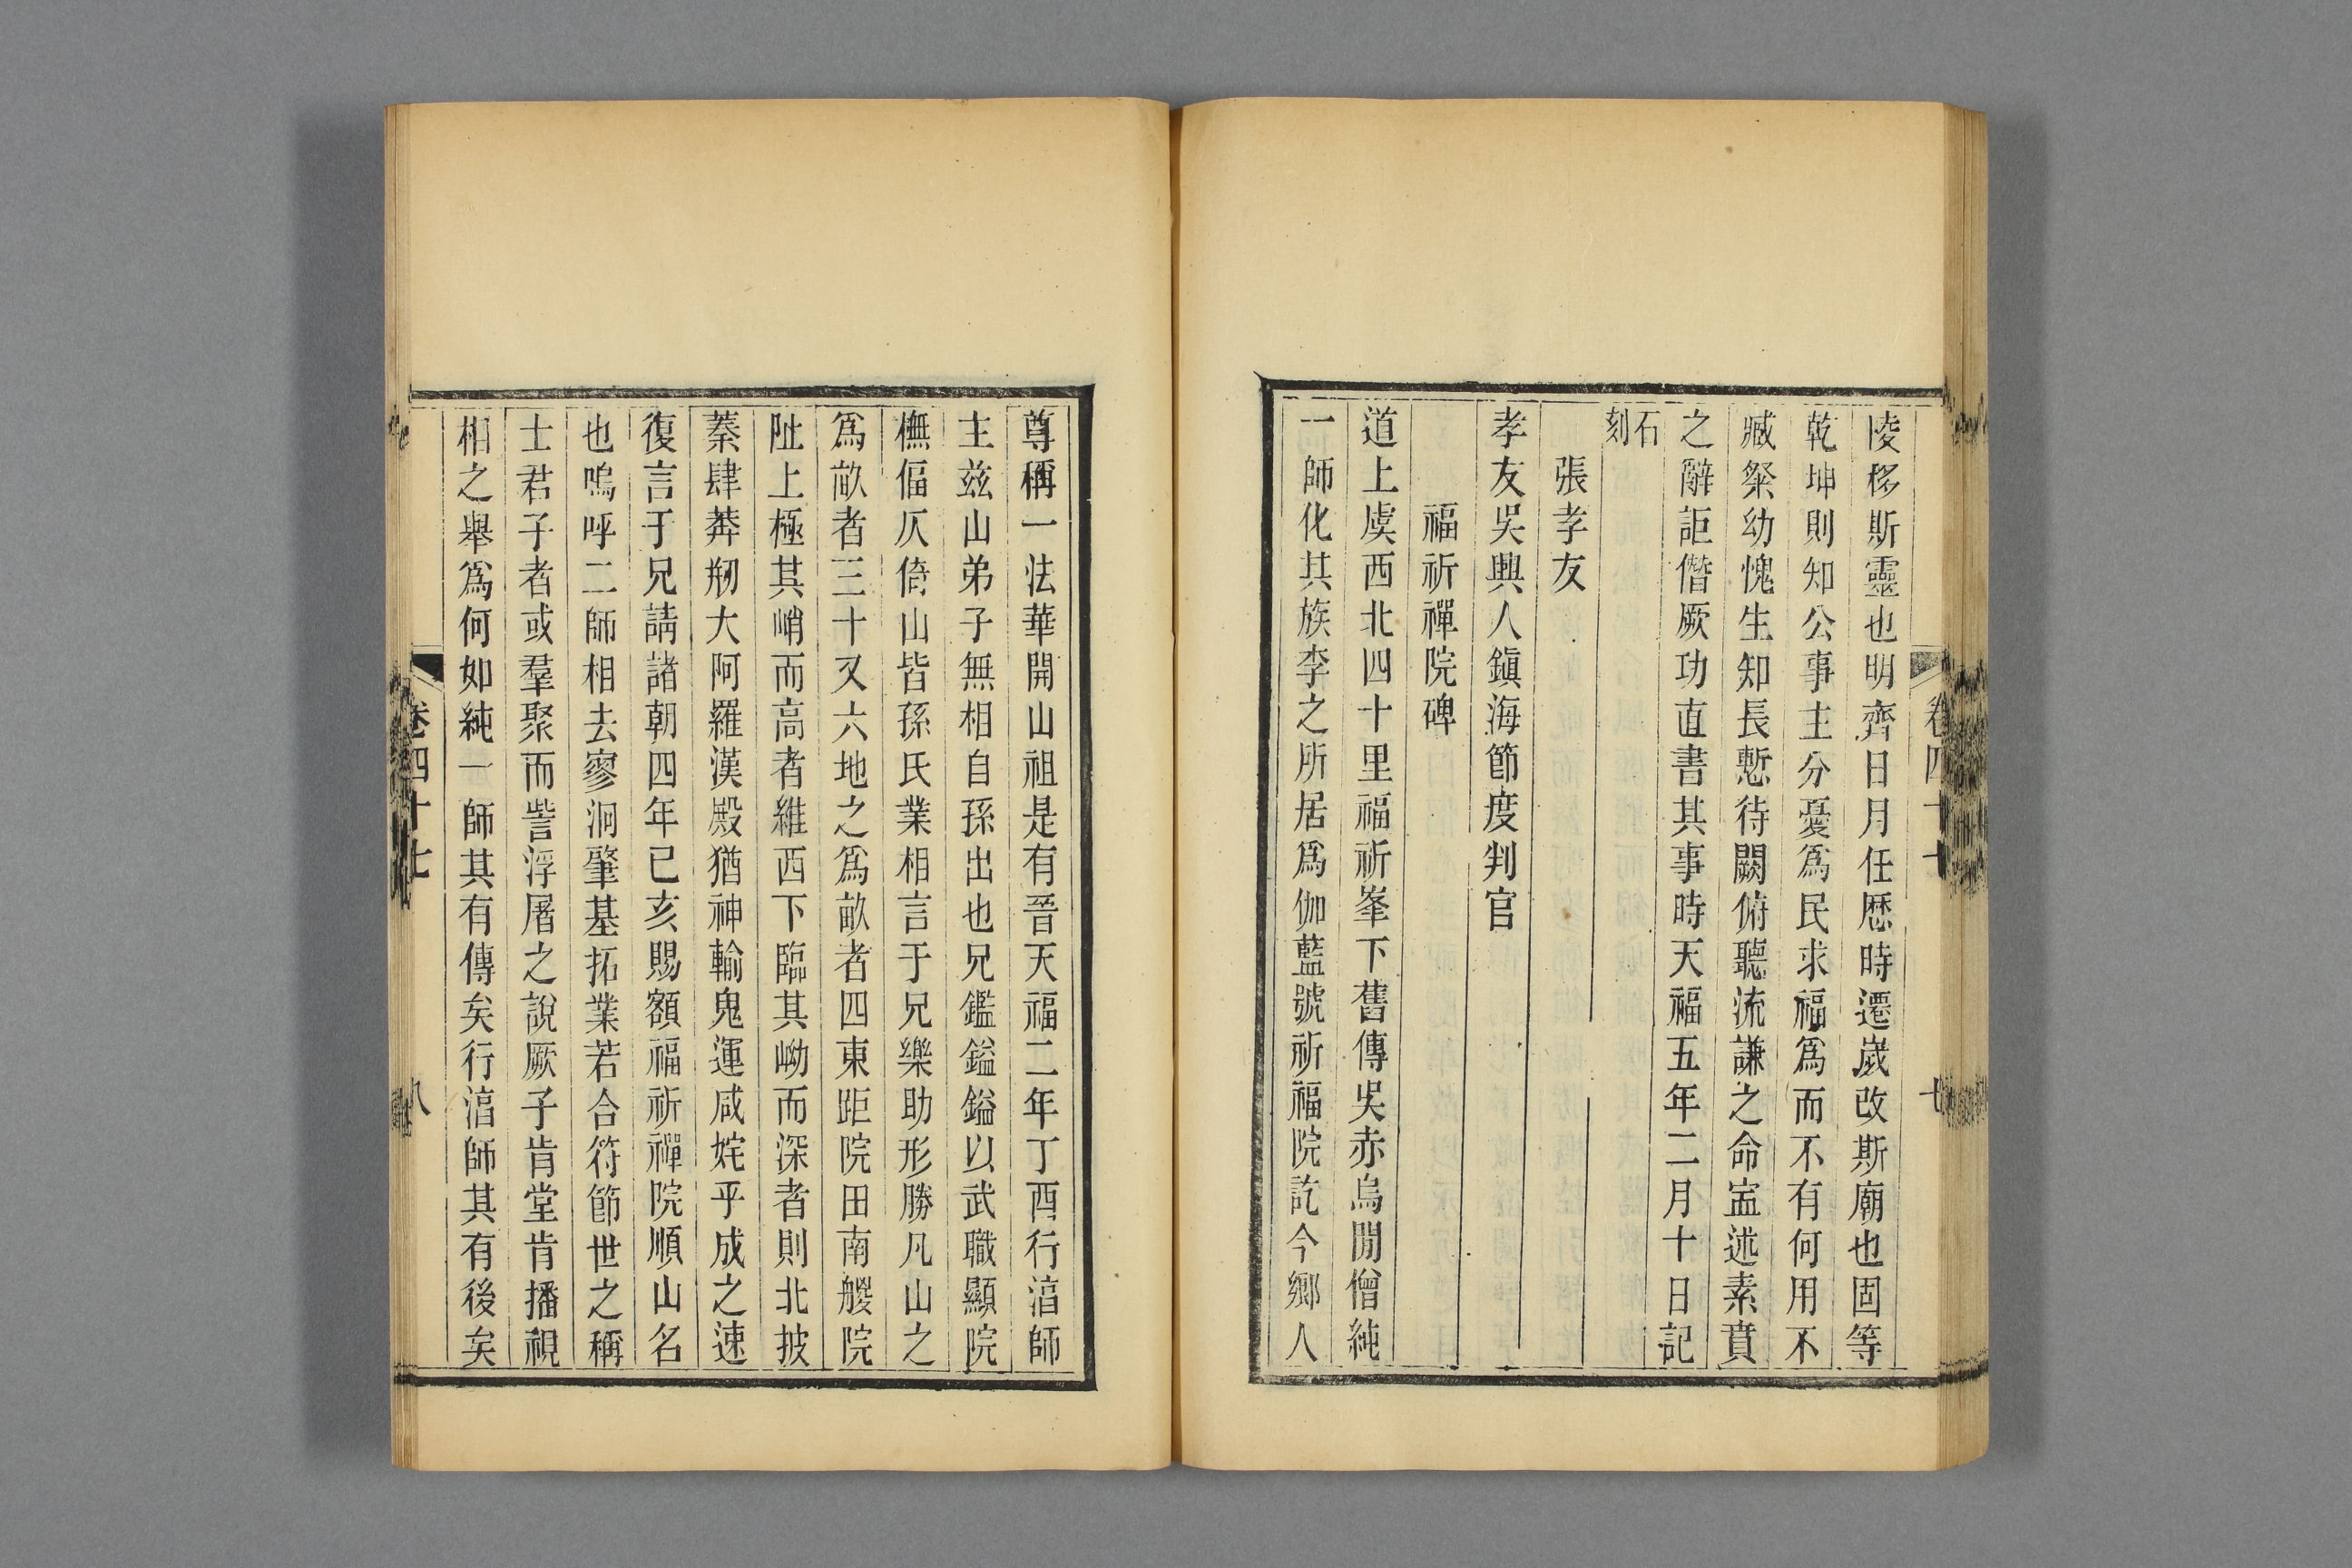 陵移斯靈也明齊日月任歷時遷嵗改斯廟也固等
乾坤則知公事主分憂爲民求福爲而不有何用不
臧粲幼愧生知長慙待闕俯聽流謙之命寍述素賁
之辭詎偕厥功直書其事時天福五年二月十日記
石刻
張孝友
孝友吳興人鎭海節度判官
福祈禪院碑
道上虞西北四十里福祈峯下舊傳吳赤烏閒僧純
一師化其族李之所居爲伽藍號祈福院訖今鄉人
尊稱一法華開山祖是有晉天福二年丁酉行湻師
主茲山弟子無相自孫出也兄鑑鎰鎰以武職顯院
橅偪仄倚山皆孫氏業相言于兄樂助形勝凡山之
爲畝者三十又六地之爲畝者四東距院田南艐院
阯上極其峭而高者維西下臨其岰而深者則北披
蓁肆莽剏大阿羅漢殿猶神輸鬼運咸姹乎成之速
復言于兄請諸朝四年已亥賜額福祈禪院順山名
也嗚呼二師相去寥泂肇基拓業若合符節世之稱
士君子者或羣聚而訾浮屠之說厥子肯堂肯播視
相之舉爲何如純一師其有傳矣行湻師其有後矣
卷四十七
八
卷四十七
七